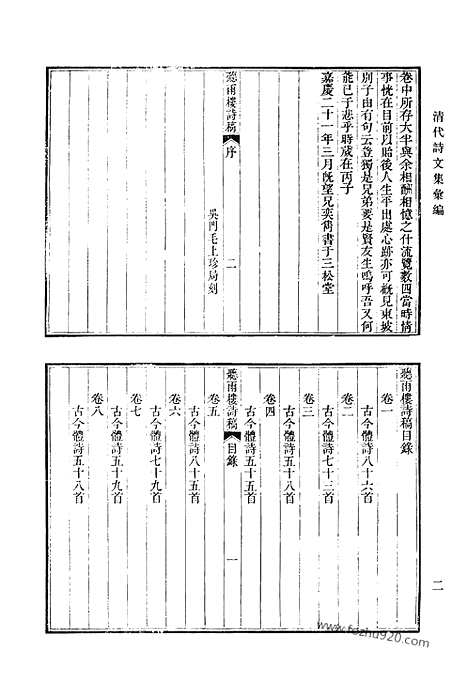 清代詩文集彙編
卷中所存大半與余相酬相憶之什流覽數四當時情
事恍在目前以貽後人生平出處心跡亦可概見東坡
別子由有句云豈獨是兄弟要是賢友生嗚呼吾又何
能已于悲乎時歲在丙子
嘉慶二十一年三月既望兄奕雋書于三松堂
吳門毛上珍局刻
聽雨樓詩稿 序 二
聽雨樓詩稿目錄
卷一
古今體詩八十六首
卷二
古今體詩七十三首
卷三
古今體詩五十八首
卷四
古今體詩五十五首
聽雨樓詩稿 目錄 一
卷五
古今體詩八十五首
卷六
古今體詩七十九首
卷七
古今體詩五十九首
卷八
古今體詩五十八首
二
www.fozhu920.com